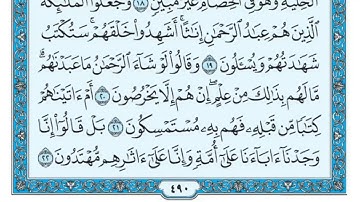 الْحِلْيَةِ وَهُوَ فِي الْخِصَامِ غَيْرُ مُبِينٍ ١٨ وَجَعَلُوا الْمَلَٰٓئِكَةَ
الَّذِينَ هُمْ عِبَٰدُ الرَّحْمَٰنِ إِنَٰثًا ۚ أَشَهِدُوا خَلْقَهُمْ ۚ سَتُكْتَبُ
شَهَٰدَتُهُمْ وَيُسْـَٔلُونَ ١٩ وَقَالُوا لَوْ شَآءَ الرَّحْمَٰنُ مَا عَبَدْنَٰهُمْ ۗ
مَّا لَهُم بِذَٰلِكَ مِنْ عِلْمٍ ۖ إِنْ هُمْ إِلَّا يَخْرُصُونَ ٢٠ أَمْ ءَاتَيْنَٰهُمْ
كِتَٰبًا مِّن قَبْلِهِۦ فَهُم بِهِۦ مُسْتَمْسِكُونَ ٢١ بَلْ قَالُوٓا إِنَّا
وَجَدْنَآ ءَابَآءَنَا عَلَىٰٓ أُمَّةٍ وَإِنَّا عَلَىٰٓ ءَاثَٰرِهِم مُّهْتَدُونَ ٢٢
٤٩٠